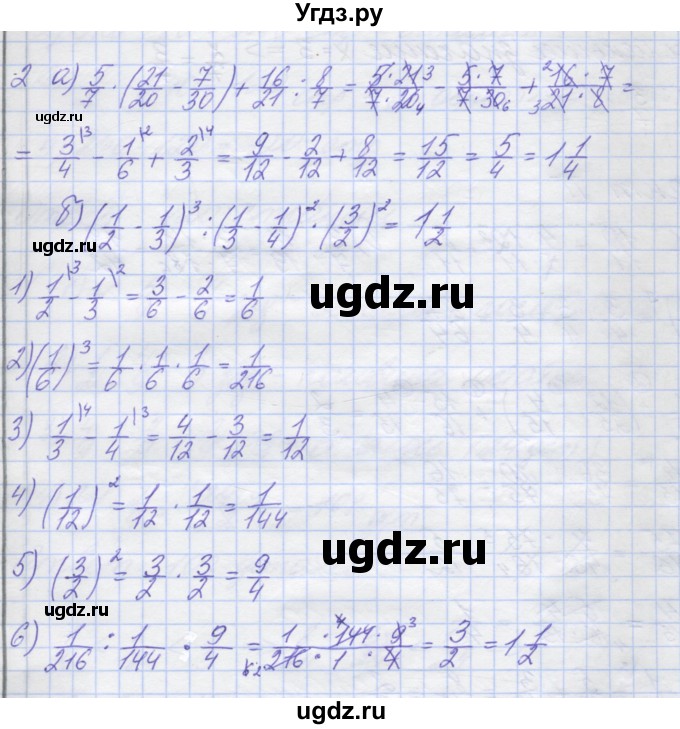 Угдз.ру
2 а) 5/7 · (21/20 - 7/30) + 16/21 : 8/7 = 5·21 3/7·20 4 - 5·7/7·30 6 + 2 16·7/3 21·8 =
ugdz.ru
= 3/4 \3 - 1/6 \2 + 2/3 \4 = 9/12 - 2/12 + 8/12 = 15/12 = 5/4 = 1 1/4
б) (1/2 - 1/3)³ : (1/3 - 1/4)² · (3/2)² = 1 1/2
ugdz.ru
1) 1/2 \3 - 1/3 \2 = 3/6 - 2/6 = 1/6
ugdz.ru
2) (1/6)³ = 1/6 · 1/6 · 1/6 = 1/216
ugdz.ru
3) 1/3 \4 - 1/4 \3 = 4/12 - 3/12 = 1/12
4) (1/12)² = 1/12 · 1/12 = 1/144
ugdz.ru
5) (3/2)² = 3/2 · 3/2 = 9/4
ugdz.ru
6) 1/216 : 1/144 · 9/4 = 1 · 144 · 9 3/216 · 1 · 4 = 3/2 = 1 1/2
ugdz.ru
ugdz.ru